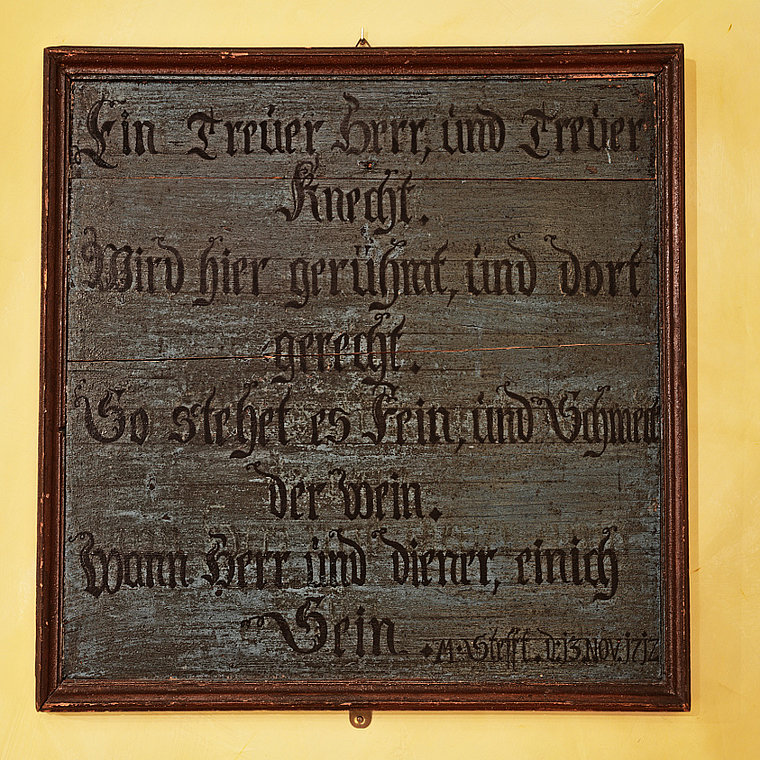 Ein Treüer Herr, und Treüer
Knecht.
Wird hier gerühmt, und dort
gerecht.
So stehet es Fein, und Schmeckt
der wein.
Wann Herr und diener, einich
Sein.
M. Stefft. d. 13. Nov. 1712